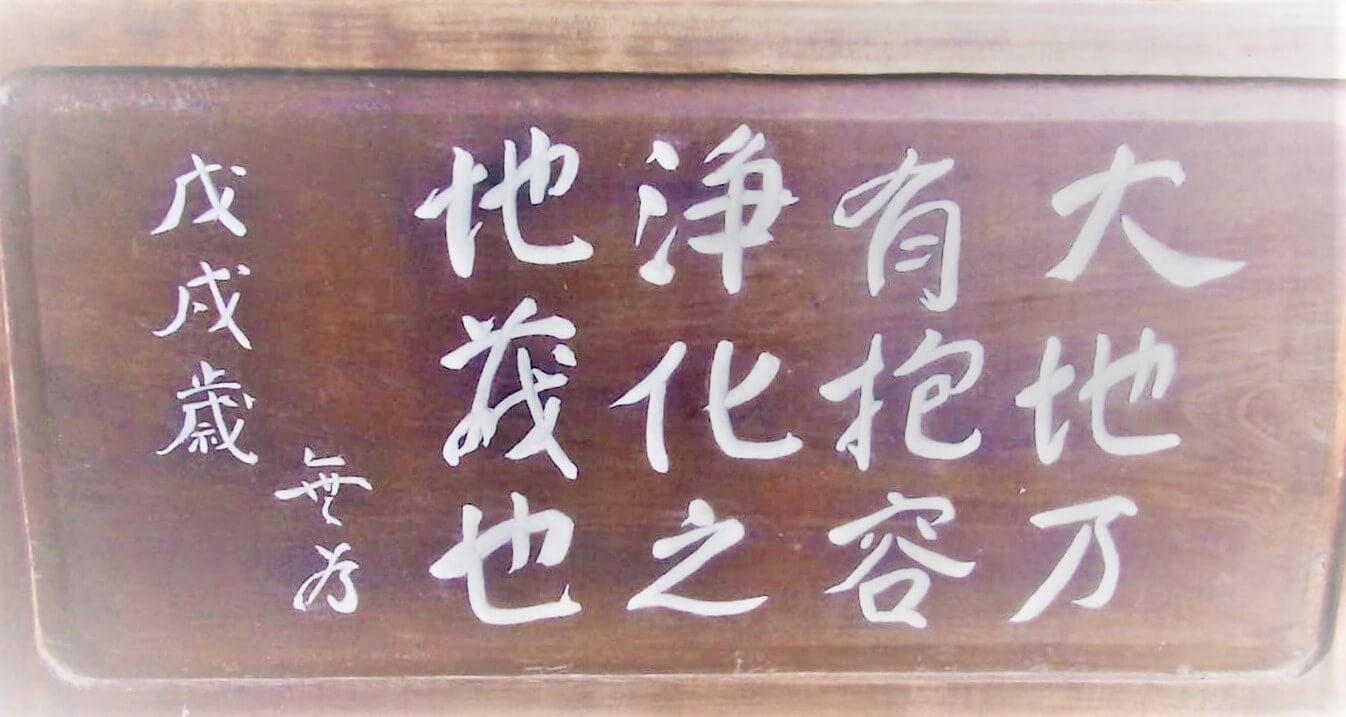 大地乃
有抱容
淨化之
地藏也
無為
戊戌歳